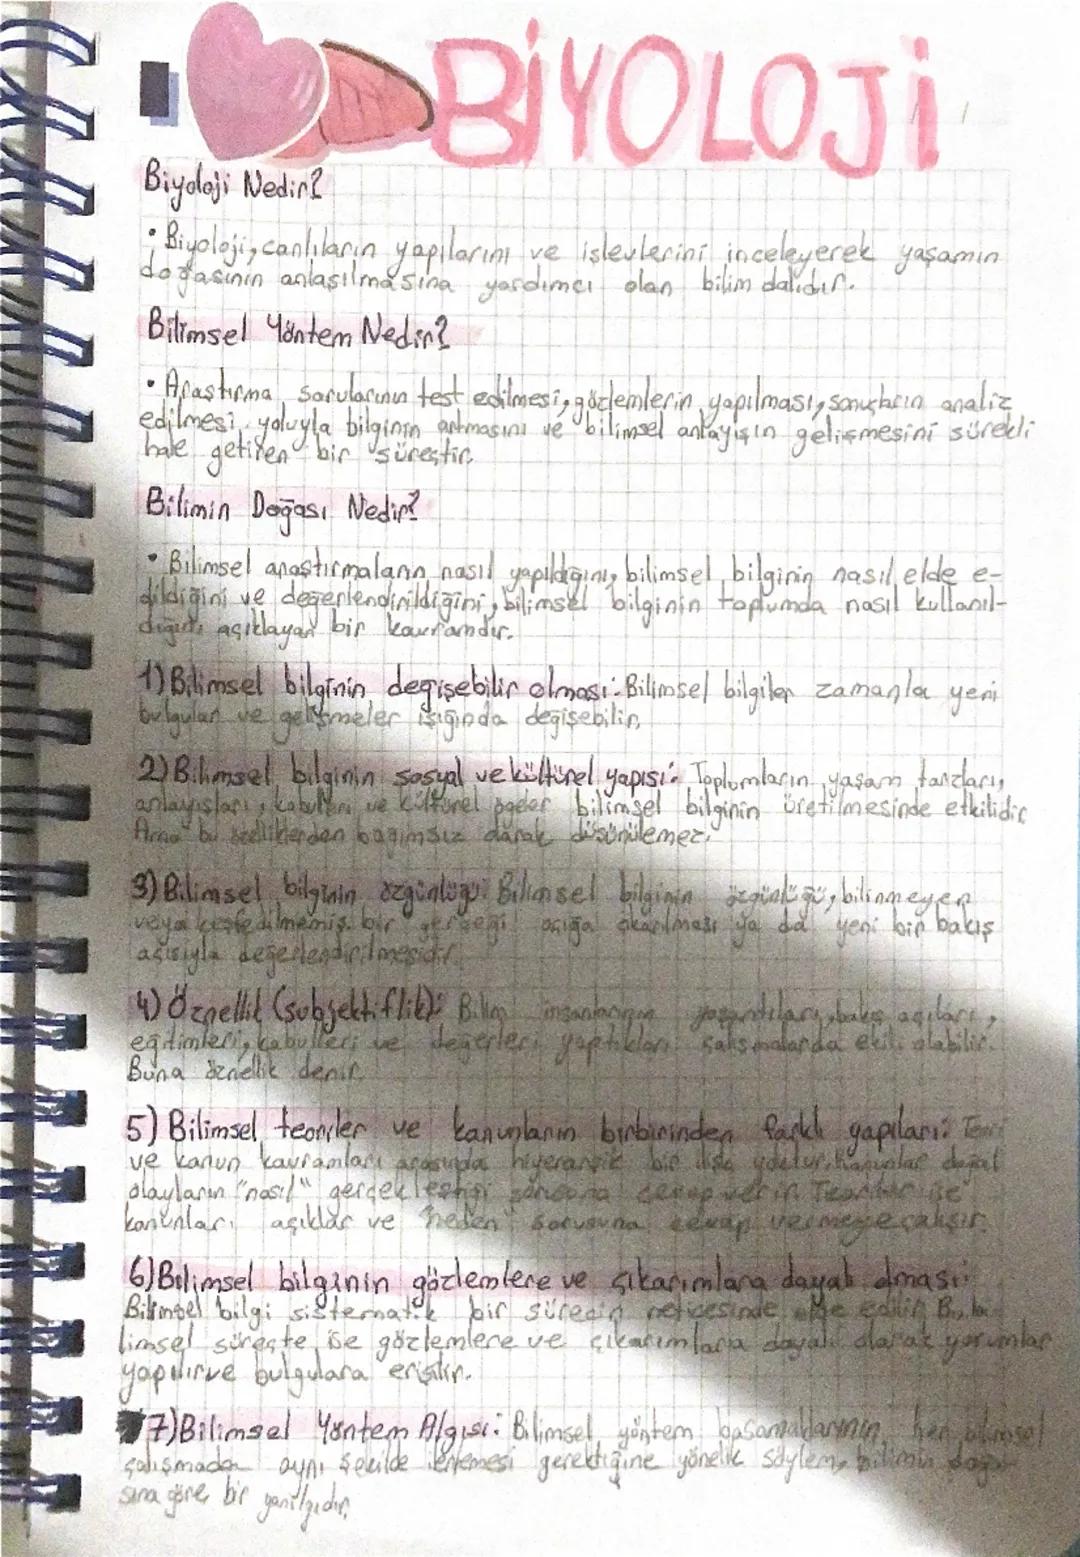 BİYOLOJİ
Biyoloji Nedir?
• Biyoloji, canlıların yapılarını ve işlevlerini inceleyerek yaşamın
doğasının anlaşılmasına yardımcı olan bilim dalıdır.
Bilimsel Yöntem Nedir?
• Araştırma sorularının test edilmesi, gözlemlerin yapılması, sonuçların analiz
edilmesi yoluyla bilginin artmasını ve bilimsel anlayışın gelişmesini sürekli
hale getiren bir süreçtir.
Bilimin Doğası Nedir?
• Bilimsel araştırmaların nasıl yapıldığını, bilimsel bilginin nasıl elde e-
dildiğini ve değerlendirildiğini, bilimsel bilginin toplumda nasıl kullanıl-
dığını açıklayan bir kavramdır.
1) Bilimsel bilginin değişebilir olması: Bilimsel bilgiler zamanla yeni
bulgular ve gelişmeler ışığında değişebilir.
2) Bilimsel bilginin sosyal ve kültürel yapısı: Toplumların yaşam tarzları,
anlayışları, kabulleri ve kültürel ögeler bilimsel bilginin üretilmesinde etkilidir
bu özelliklerden bağımsız olarak düşünülemez.
3) Bilimsel bilginin özgünlüğü: Bilimsel bilginin özgünlüğü, bilinmeyen
veya keşfedilmemiş bir gerçeği açığa çıkarılması ya da yeni bir bakış
açısıyla değerlendirilmesidir.
4) Öznellik (subjektiflik): Bilim insanlarının yaşantıları, bakış açıları,
eğitimleri, kabulleri ve değerleri yaptıkları çalışmalarda etkili olabilir.
Buna öznellik denir.
5) Bilimsel teoriler ve kanunların birbirinden farklı yapıları: Teori
ve kanun kavramları arasında hiyerarşik bir ilişki yoktur. Kanunlar doğal
olayların "nasıl" gerçekleştiği sorusuna cevap verir. Teoriler ise
kanunları açıklar ve "neden" sorusuna cevap vermeye çalışır.
6) Bilimsel bilginin gözlemlere ve çıkarımlara dayalı olması:
Bilimsel bilgi sistematik bir sürecin neticesinde elde edilir. Bu bi
limsel süreçte ise gözlemlere ve çıkarımlara dayalı olarak yorumlar
yapılır ve bulgulara erişilir.
7) Bilimsel Yöntem Algısı: Bilimsel yöntem basamaklarının her bilimsel
çalışmada aynı şekilde ilerlemesi gerektiğine yönelik söylem, bilimin doğa
sına göre bir yanılgıdır.